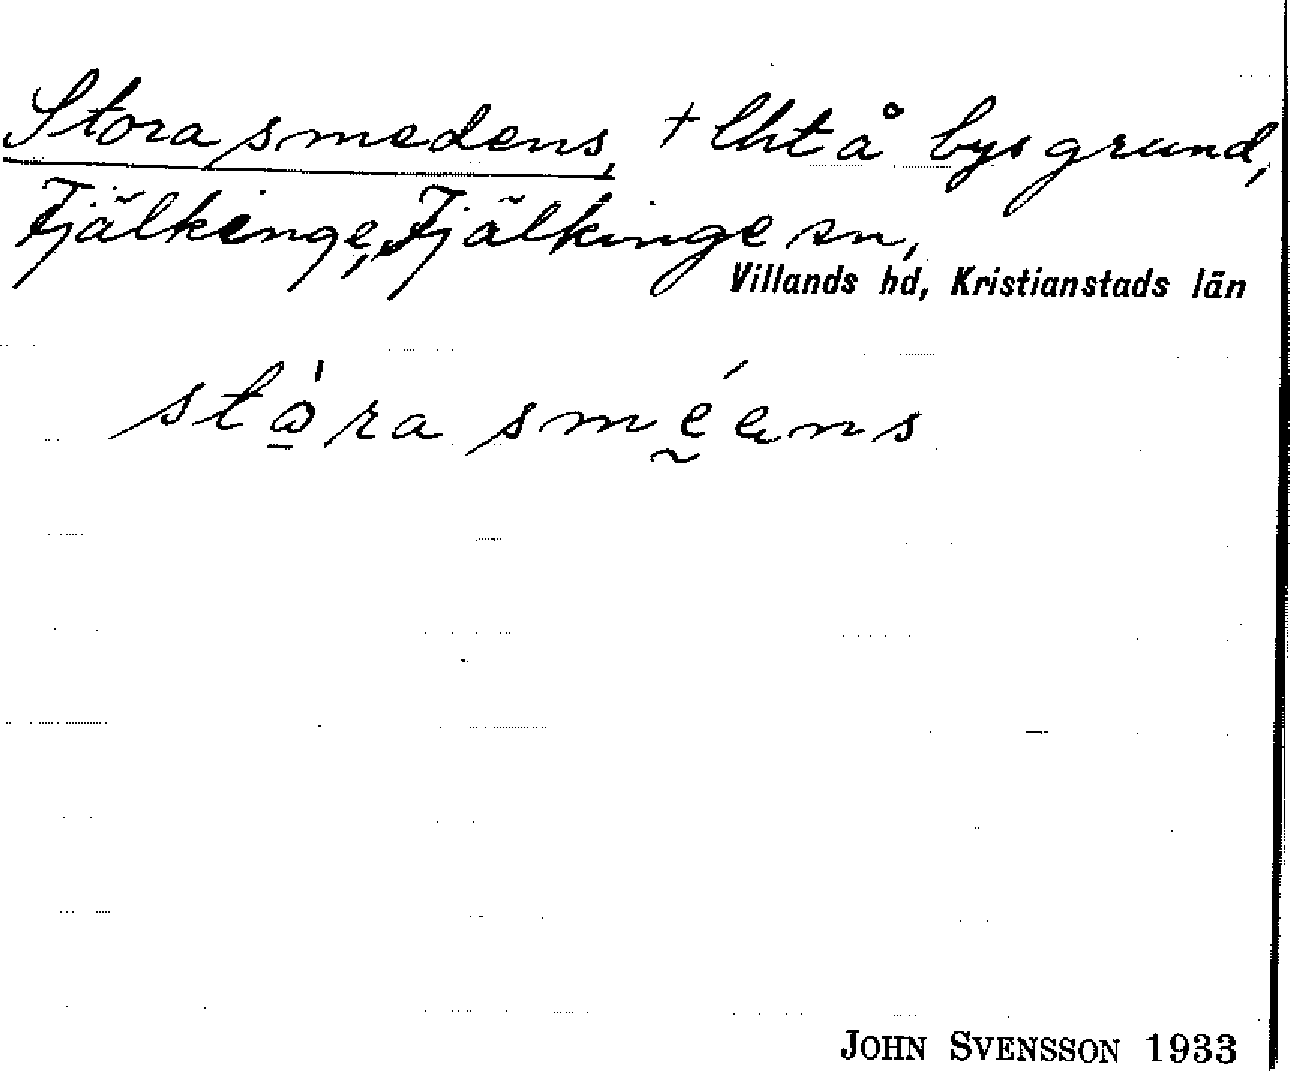 Stora smedens, + lht å bys grund,
Fjälkinge, Fjälkinge sn,
Villands hd, Kristianstads län
stòra sméans
JOHN SVENSSON 1933